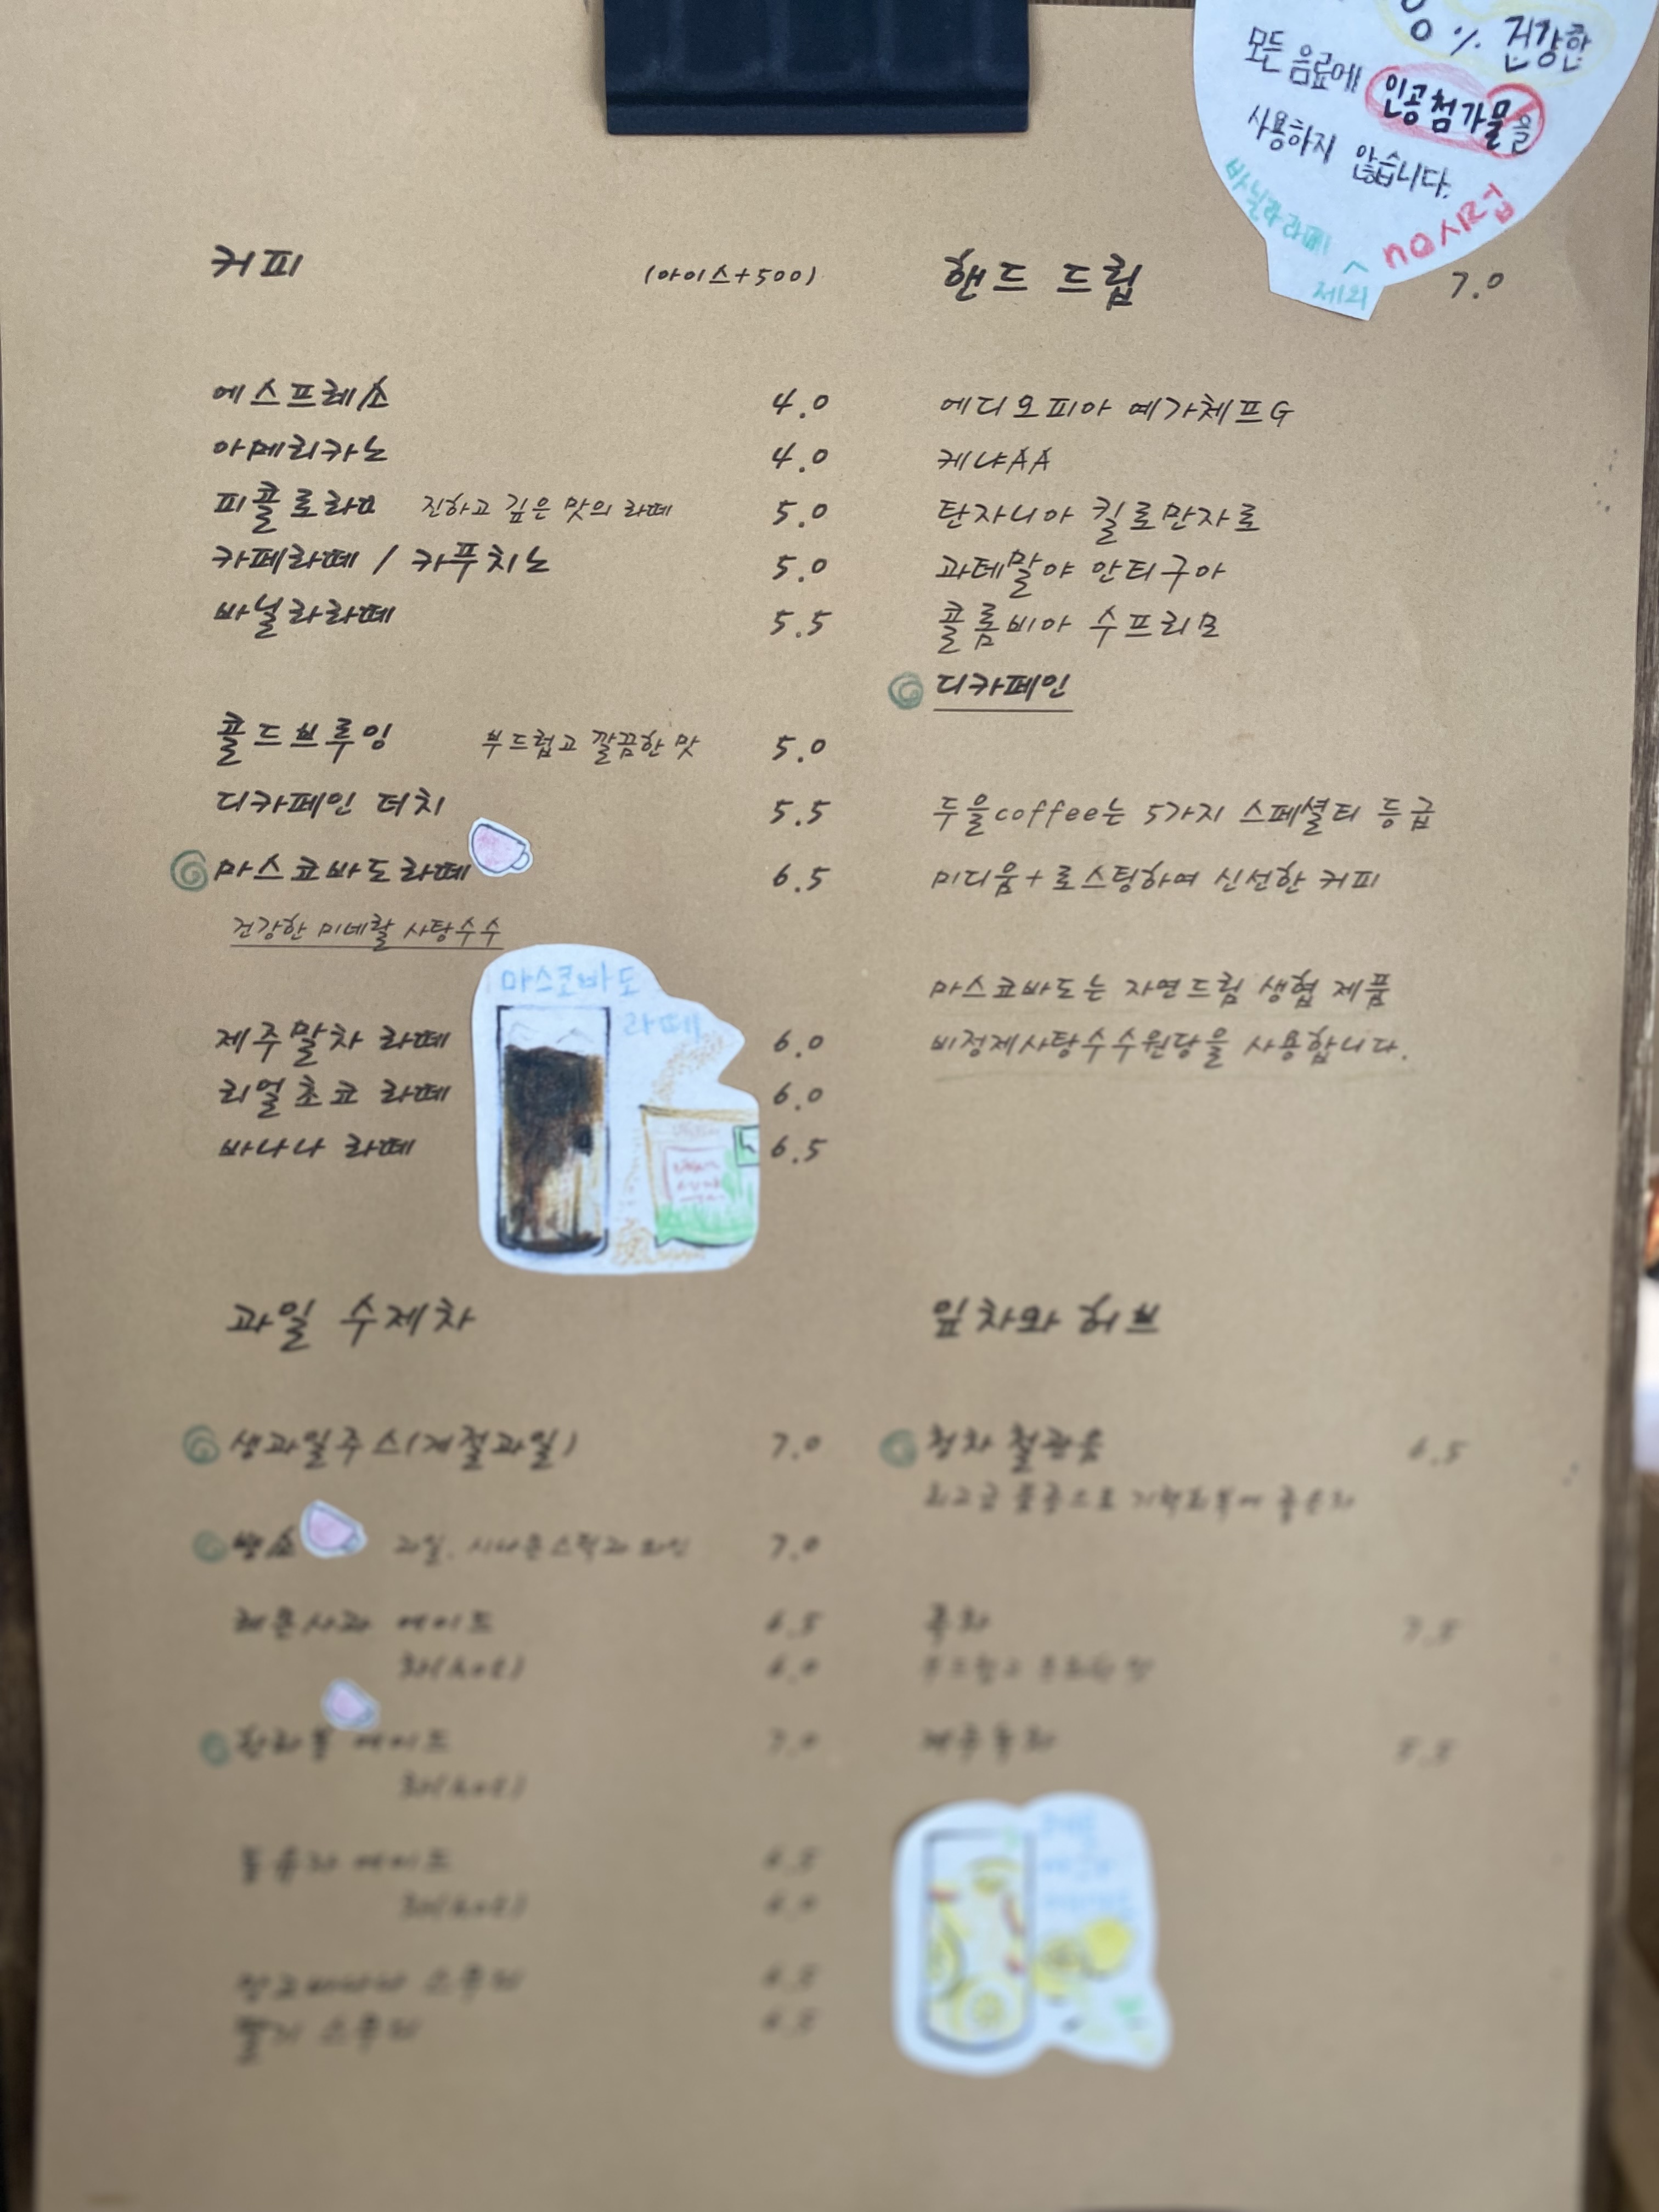 % 건강한
모든 음료에 인공첨가물을
사용하지 않습니다.
바닐라라떼 제외
no시럽
커피 (아이스+500)
에스프레소 4.0
아메리카노 4.0
피콜로라떼 진하고 깊은 맛의 라떼 5.0
카페라떼 / 카푸치노 5.0
바닐라라떼 5.5
콜드브루잉 부드럽고 깔끔한 맛 5.0
디카페인 더치 5.5
마스코바도라떼 6.5
건강한 미네랄 사탕수수
마스코바도
라떼
제주말차 라떼 6.0
리얼초코 라떼 6.0
바나나 라떼 6.5
핸드 드립 7.0
에디오피아 예가체프G
케냐AA
탄자니아 킬로만자로
과테말야 안티구아
콜롬비아 수프리모
디카페인
두을coffee는 5가지 스페셜티 등급
미디움+로스팅하여 신선한 커피
마스코바도는 자연드림 생협 제품
비정제사탕수수원당을 사용합니다.
과일 수제차
생과일주스(계절과일) 7.0
뱅쇼 과일, 시나몬스틱과 와인 7.0
레몬사과 에이드 6.5
차(hot) 6.0
한라봉 에이드 7.0
차(hot)
에이드 6.5
차(hot) 6.0
망고바나나 스무디 6.5
딸기 스무디 6.5
잎차와 허브
청차 철관음 6.5
최고급 품종으로 기력회복에 좋은차